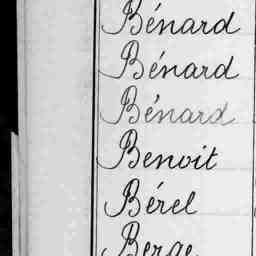 Bénard
Bénard
Bénard
Benoit
Bérel
Berge